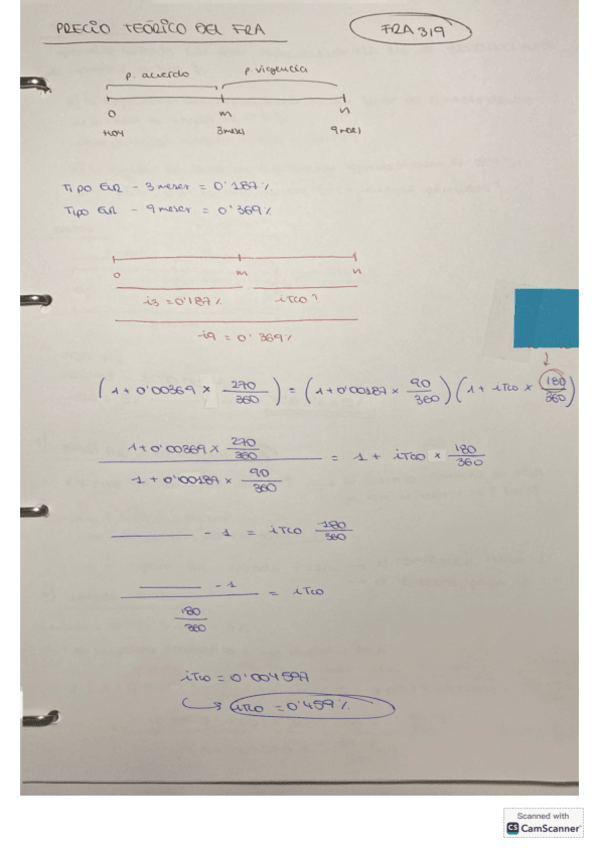 PRECIO TEÓRICO DEL FRA
FRA 3/9
p. acuerdo
p. vigencia
0 m n
HOY 3 meses 9 meses
Tipo EUR - 3 meses = 0'187%
Tipo EUR - 9 meses = 0'369%
0 m n
i3 = 0'187% iTCO ?
i9 = 0'369%
(1 + 0'00369 × 270/360) = (1 + 0'00187 × 90/360) (1 + iTCO × 180/360)
1 + 0'00369 × 270/360
= 1 + iTCO × 180/360
1 + 0'00187 × 90/360
- 1 = iTCO 180/360
- 1
= iTCO
180/360
iTCO = 0'004597
iTCO = 0'459%
Scanned with
CS CamScanner